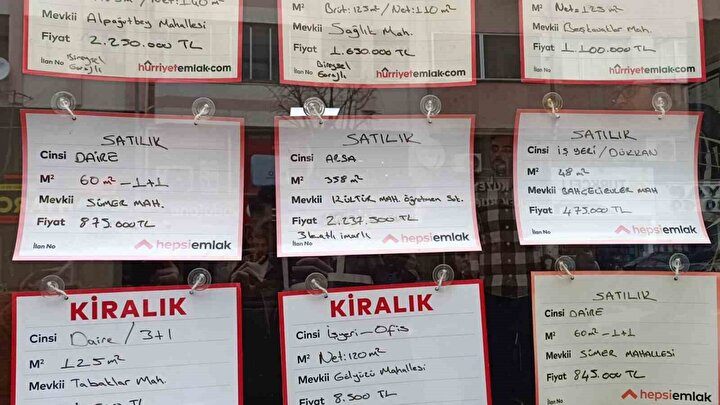 M² Brüt:125m²/Net:110m²
Net=125m²
Mevkii Alpağutbey Mahallesi
Fiyat 2.250.000 TL
İlan No Bireysel Garajlı
hürriyetemlak.com
Mevkii Sağlık Mah.
Fiyat 1.650.000 TL
İlan No Bireysel Garajlı
hürriyetemlak.com
Mevkii Beşkavaklar Mah.
Fiyat 1.100.000 TL
İlan No
hürriyetemlak.com
SATILIK
Cinsi DAİRE
M² 60 m² - 1+1
Mevkii SÜMER MAH.
Fiyat 875.000TL
İlan No
hepsiemlak
SATILIK
Cinsi ARSA
M² 358 m²
Mevkii KÜLTÜR MAH. Öğretmen Sit.
Fiyat 2.237.500 TL
İlan No 3 katlı imarlı
hepsiemlak
SATILIK
Cinsi İŞ YERİ/DÜKKAN
M² 48 m²
Mevkii BAHÇELİEVLER MAH
Fiyat 475.000TL
İlan No
hepsiemlak
KİRALIK
Cinsi Daire/3+1
M² 125m²
Mevkii Tabaklar Mah.
KİRALIK
Cinsi İşyeri-Ofis
M² Net:120m²
Mevkii Gölyüzü Mahallesi
Fiyat 8.500 TL
SATILIK
Cinsi DAİRE
M² 60m²-1+1
Mevkii SÜMER MAHALLESİ
Fiyat 845.000 TL
İlan No
hepsiemlak